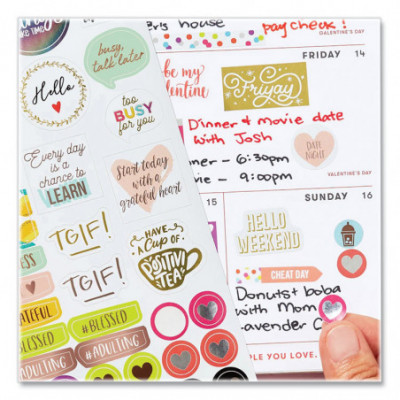 TIME
busy,
talk later
Hello
too
BUSY
for you
Every day
is a
chance to
LEARN
Start today
with a
grateful heart
TGIF!
HAVE
A CUP OF
POSITIVI
TEA!
TGIF!
#BLESSED
#BLESSED
#ADULTING
#ADULTING
house
pay check!
GALENTINE'S DAY
FRIDAY 14
be my
Friyay
Dinner & movie date
with Josh
Dinner - 6:30pm
- 9:00pm
DATE
NIGHT
VALENTINE'S DAY
15
SUNDAY 16
HELLO
WEEKEND
CHEAT DAY
Donuts & boba
with Mom
Lavender
YOU LOVE.